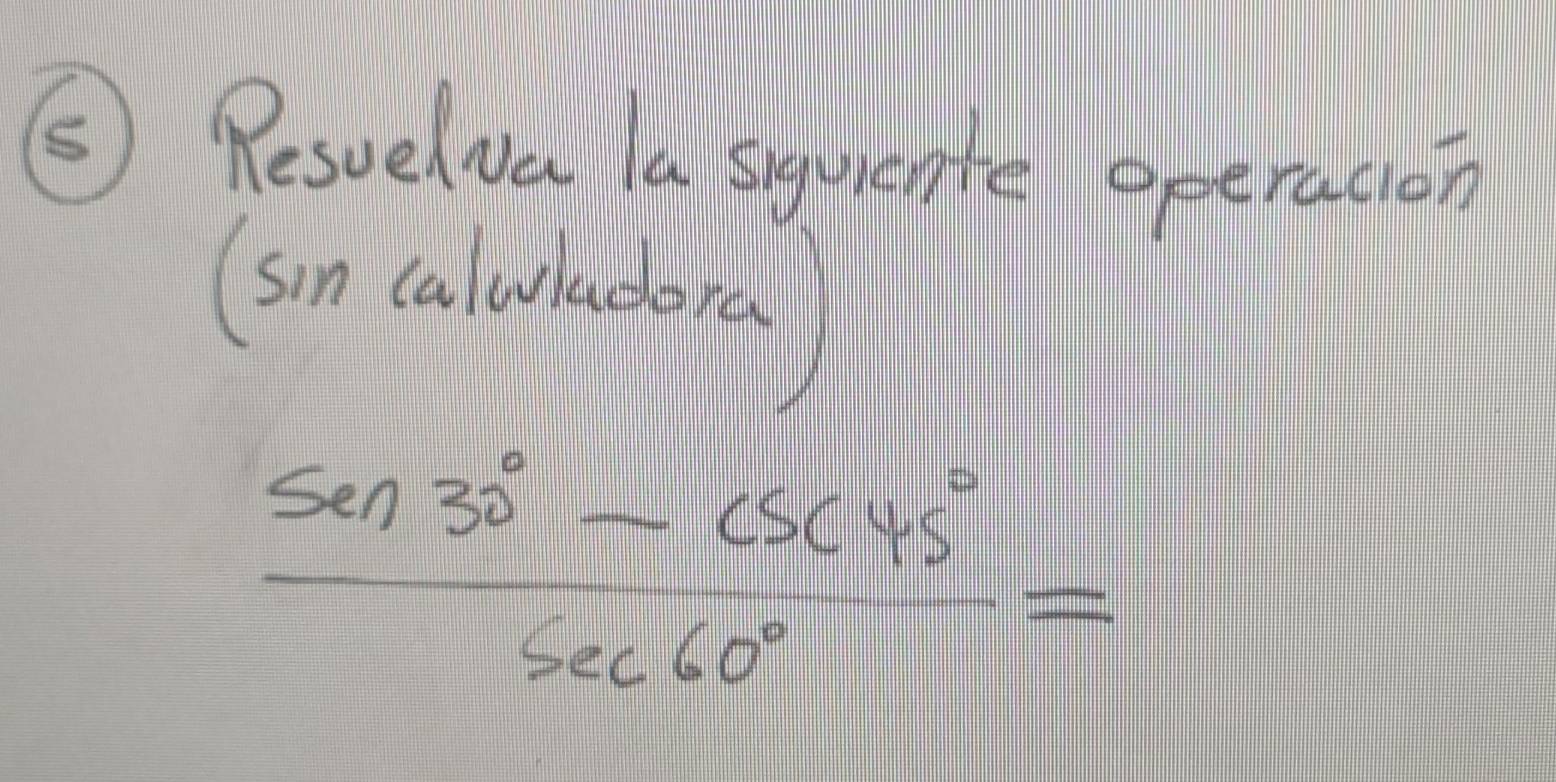 ⑤ Resuelva la siguiente operación
(sin calculadora)
sen 30° - csc 45°
=
sec 60°